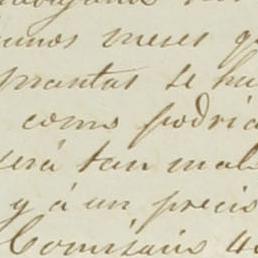 unos meses q
prontas se hu
como podria
será tan mal
y á un precio
Comisario 40